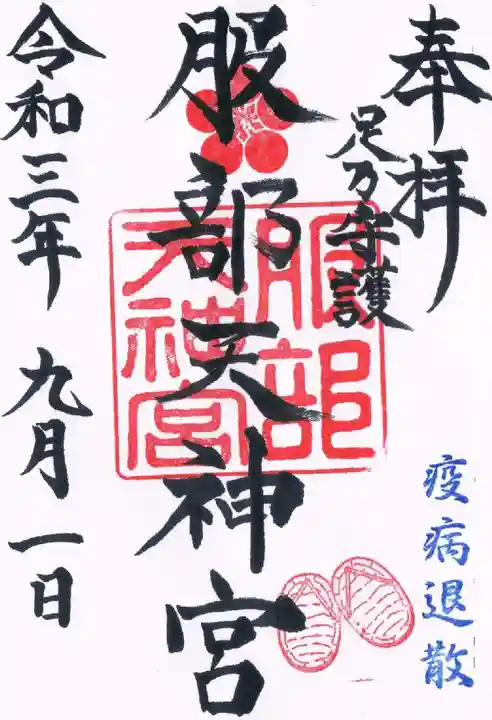 奉拝
足乃守護
疫病退散
服部天神宮
服部
天神宮
令和三年 九月一日